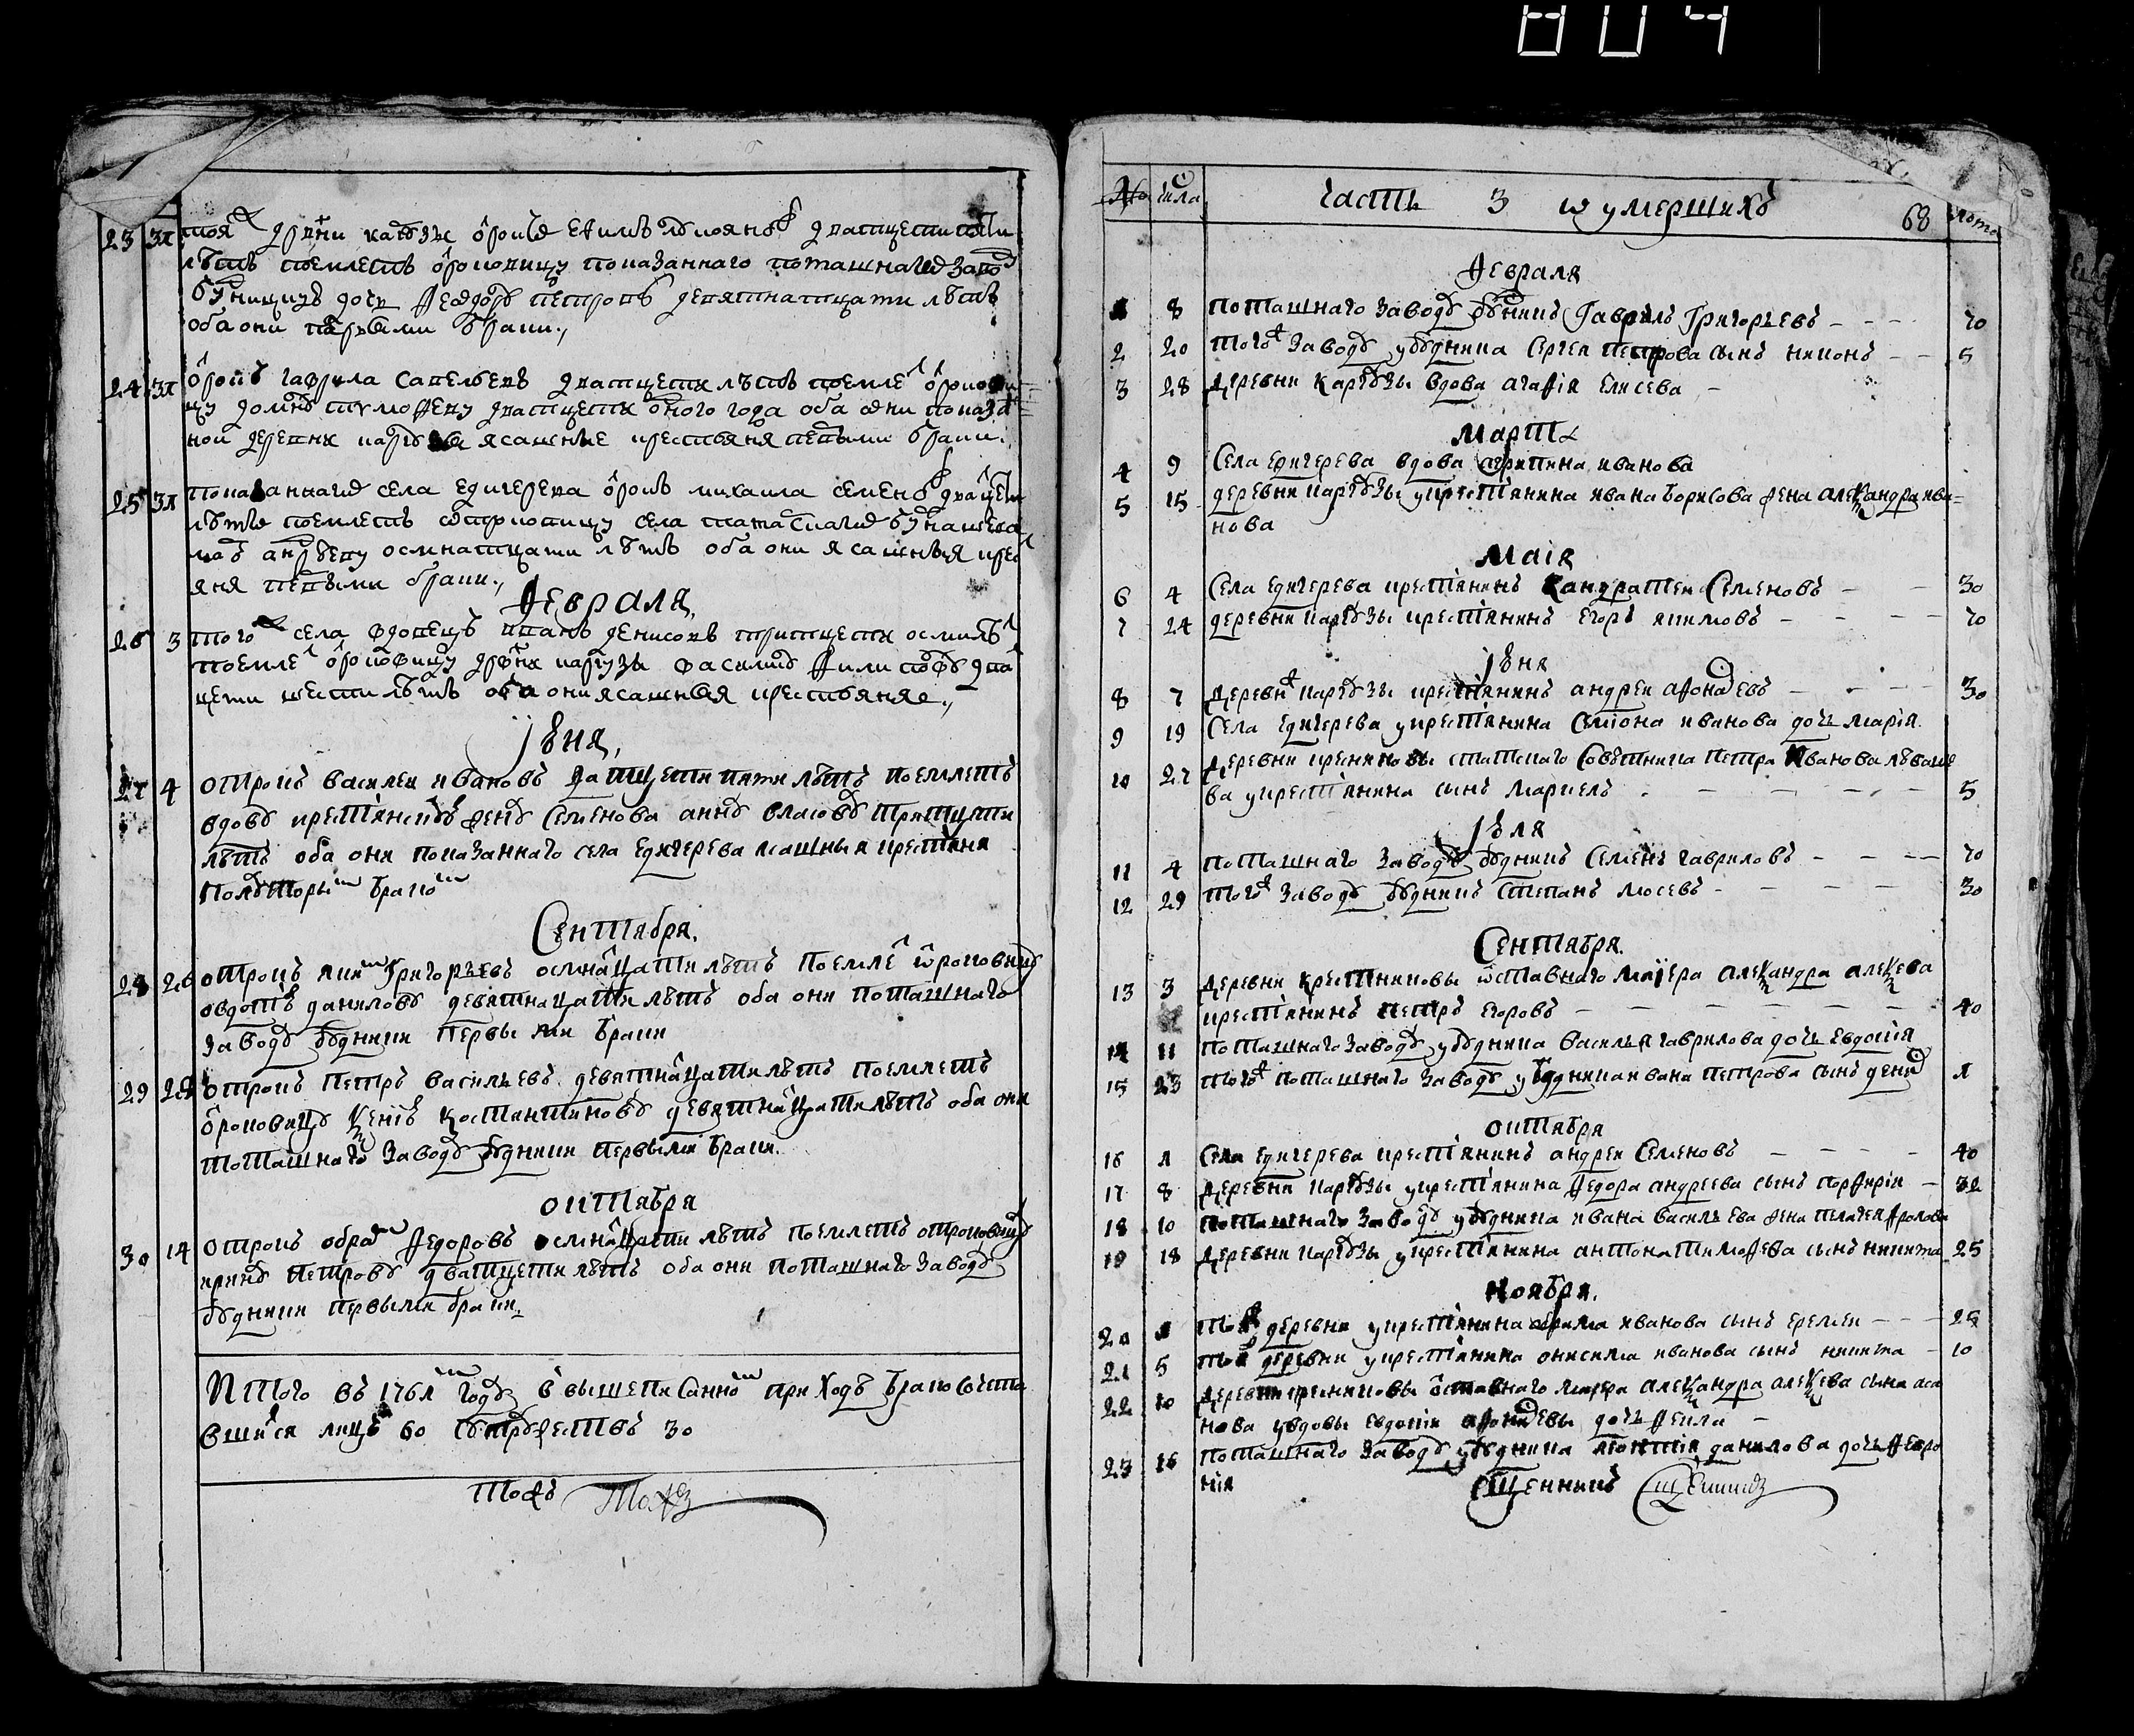 804
23 31 тояж дрвни каргозы отрокъ Ефимъ двацети пяти
лѣтъ поемлетъ отроковицу показаннаго поташнаго завода
будницкую дочь Федору Петрову девятнатцати лѣтъ
оба они первыми браки
24 31 отрокъ гаврила савельевъ дватцети лѣтъ поемлетъ отрокови
цу домну тимофееву дватцети одного года оба они показа
ной деревни ясашные крестьяня первыми браки
25 31 показанного села едигерева отрокъ михаила семеновъ двацети
лѣтъ поемлетъ отроковицу села
андрѣеву осмнатцати лѣтъ оба они ясашныя крес
яня первыми браки
Февраля
26 3 того ж села вдовецъ иванъ денисовъ тритцети осми лѣтъ
поемлетъ отроковицу дрвни василису филипову два
цети шести лѣтъ оба они ясашныя крестьяняе
Јуня
27 4 отрокъ василеи ивановъ дватцети пяти лѣтъ поемлетъ
вдову крестьянскую жену семенова анну власову тритцети
лѣтъ оба они показанного села едигерева ясашныя крестьяня
полуторым браком
Сентября
28 26 отрокъ яким григорьевъ осмнацати лѣтъ поемлетъ отроковицу
овдотью данилову девятнацати лѣтъ оба они поташнаго
заводу будники первыми браки
29 28 отрокъ петръ васильевъ девятнацати лѣтъ поемлетъ
отроковицу ѯенію костантинову девятнацати лѣтъ оба они
поташнаго заводу будники первыми браки
октября
30 14 отрокъ абрам федоровъ осмнацати лѣтъ поемлетъ отроковицу
ирину петрову дватцети лѣтъ оба они поташнаго заводу
будники первыми браки
Итого въ 1761м году в вышеписанном приходѣ бракосочета
вшихся лицъ 60 супружествъ 30
тожъ тожъ
№ числа часть 3 ѡ умершихъ 68 лѣта
Февраля
1 8 поташнаго заводу будникъ Гаврилъ Григорьевъ 70
2 20 того ж заводу у будника Сергея Петрова сынъ никонъ 5
3 28 деревни каргузы вдова агафія елисева
марта
4 9 села едигерева вдова агрипина иванова
5 15 деревни каргузы у крестьянина ивана борисова жена алеѯандра ива=
нова
Маія
6 4 села едигерева крестьянинъ кандратеи семеновъ 30
7 24 деревни каргузы крестьянинъ егоръ якимовъ 70
јуня
8 7 деревни каргузы крестьянинъ андреи афонасевъ 30
9 19 села едигерева у крестьянина семіона иванова дочь марія
10 27 деревни статскаго совѣтника петра иванова лѣваше
ва у крестьянина сынъ маркелъ 5
јуля
11 4 поташнаго заводу будникъ семенъ гавриловъ 70
12 29 того ж заводу будникъ степанъ мосевъ 30
Сентября
13 3 деревни ѿставнаго маіера алеѯандра алеѯева
крестьянинъ петръ егоровъ 40
14 11 поташнаго заводу у будника василья гаврилова дочь евдокія
15 23 того ж поташнаго заводу у будника ивана петрова сынъ денис 1
октября
16 1 села едигерева крестьянинъ андреи семеновъ 40
17 8 деревни каргузы у крестьянина федора андреева сынъ порфиріи 32
18 10 поташнаго заводу у будника ивана васильева жена пелагея фролова
19 18 деревни каргузы у крестьянина антона тимофева сынъ никита 25
Ноября
20 1 тои ж деревни у крестьянина иванова сынъ еремеи 25
21 5 тои ж деревни у крестьянина онисима иванова сынъ никита 10
22 10 деревни ѿставнаго маіера алеѯандра алеѯева сына аса
нова у вдовы евдокіи афонасевы дочь фекла
23 16 поташнаго заводу у будника леонтія данилова дочь февро
нія
Сщенникъ Сщенникъ